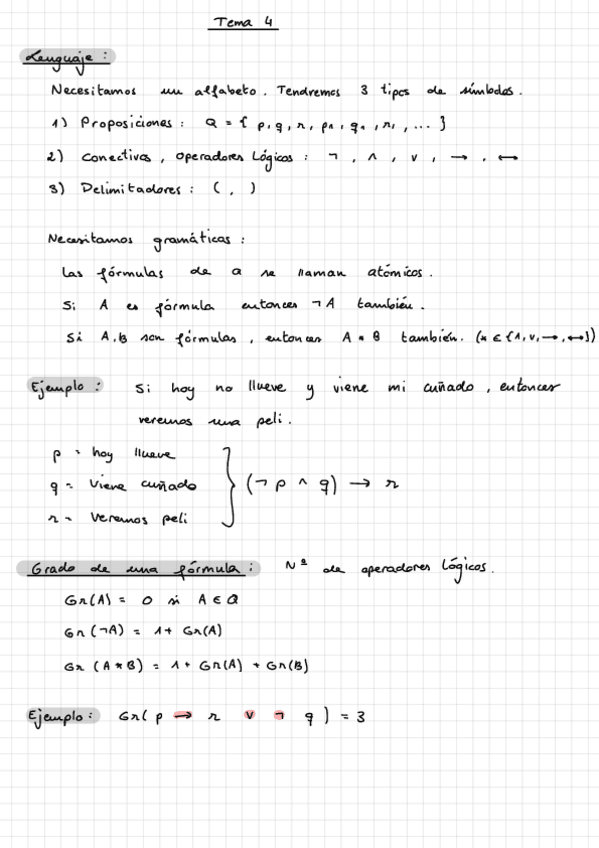 Tema 4
Lenguaje:
Necesitamos un alfabeto. Tendremos 3 tipos de símbolos.
1) Proposiciones: Q = { p, q, r, p₁, q₁, r₁, ... }
2) Conectivos, operadores Lógicos: ¬, ∧, ∨, →, ↔
3) Delimitadores: ( , )
Necesitamos gramáticas:
Las fórmulas de Q se llaman atómicos.
Si A es fórmula entonces ¬A también.
Si A, B son fórmulas, entonces A * B también. (* ∈ {∧, ∨, →, ↔})
Ejemplo: Si hoy no llueve y viene mi cuñado, entonces
veremos una peli.
p = hoy llueve
q = Viene cuñado
r = Veremos peli
(¬p ∧ q) → r
Grado de una fórmula: Nº de operadores Lógicos.
Gr(A) = 0 si A ∈ Q
Gr(¬A) = 1 + Gr(A)
Gr (A * B) = 1 + Gr(A) + Gr(B)
Ejemplo: Gr( p → r ∨ ¬ q ) = 3